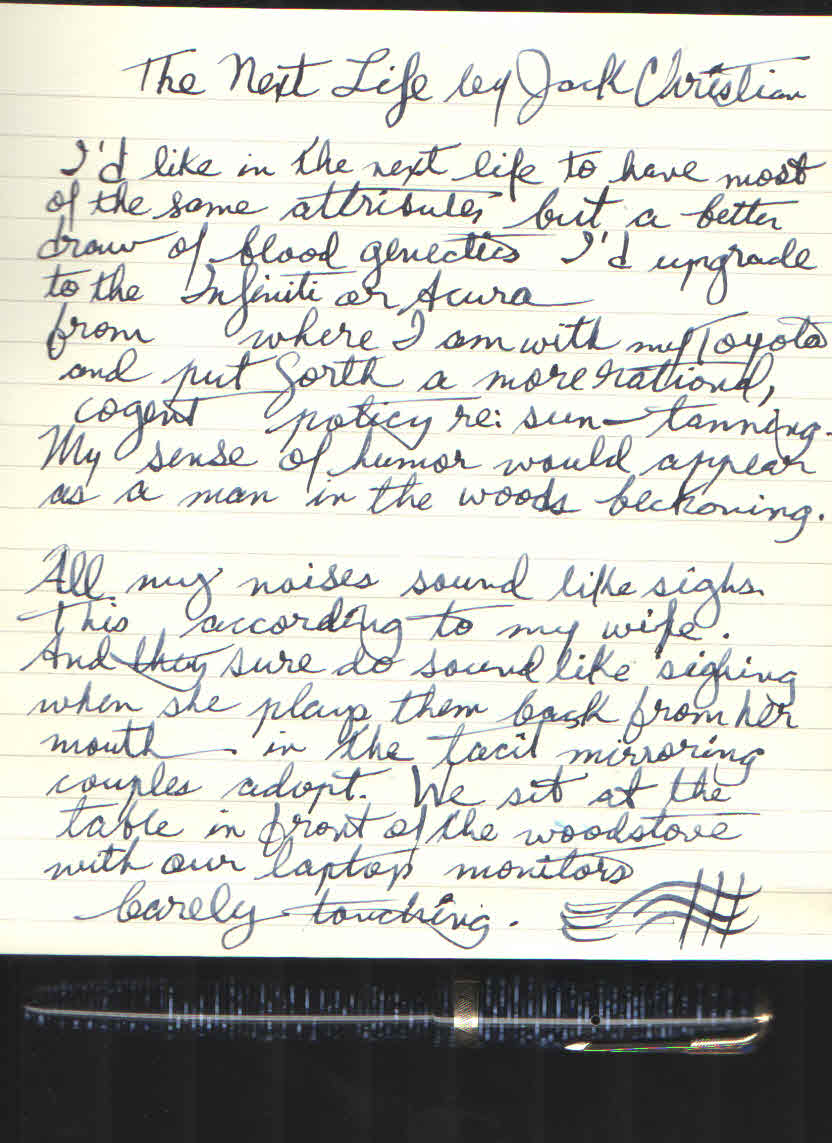 The Next Life by Jack Christian
I'd like in the next life to have most
of the same attributes but a better
draw of blood genetics I'd upgrade
to the Infiniti or Acura
from where I am with my Toyota
and put forth a more rational,
cogent policy re: sun-tanning.
My sense of humor would appear
as a man in the woods beckoning.
All my noises sound like sighs.
This according to my wife.
And they sure do sound like sighing
when she plays them back from her
mouth - in the tacit mirroring
couples adopt. We sit at the
table in front of the woodstove
with our laptop monitors
barely touching.